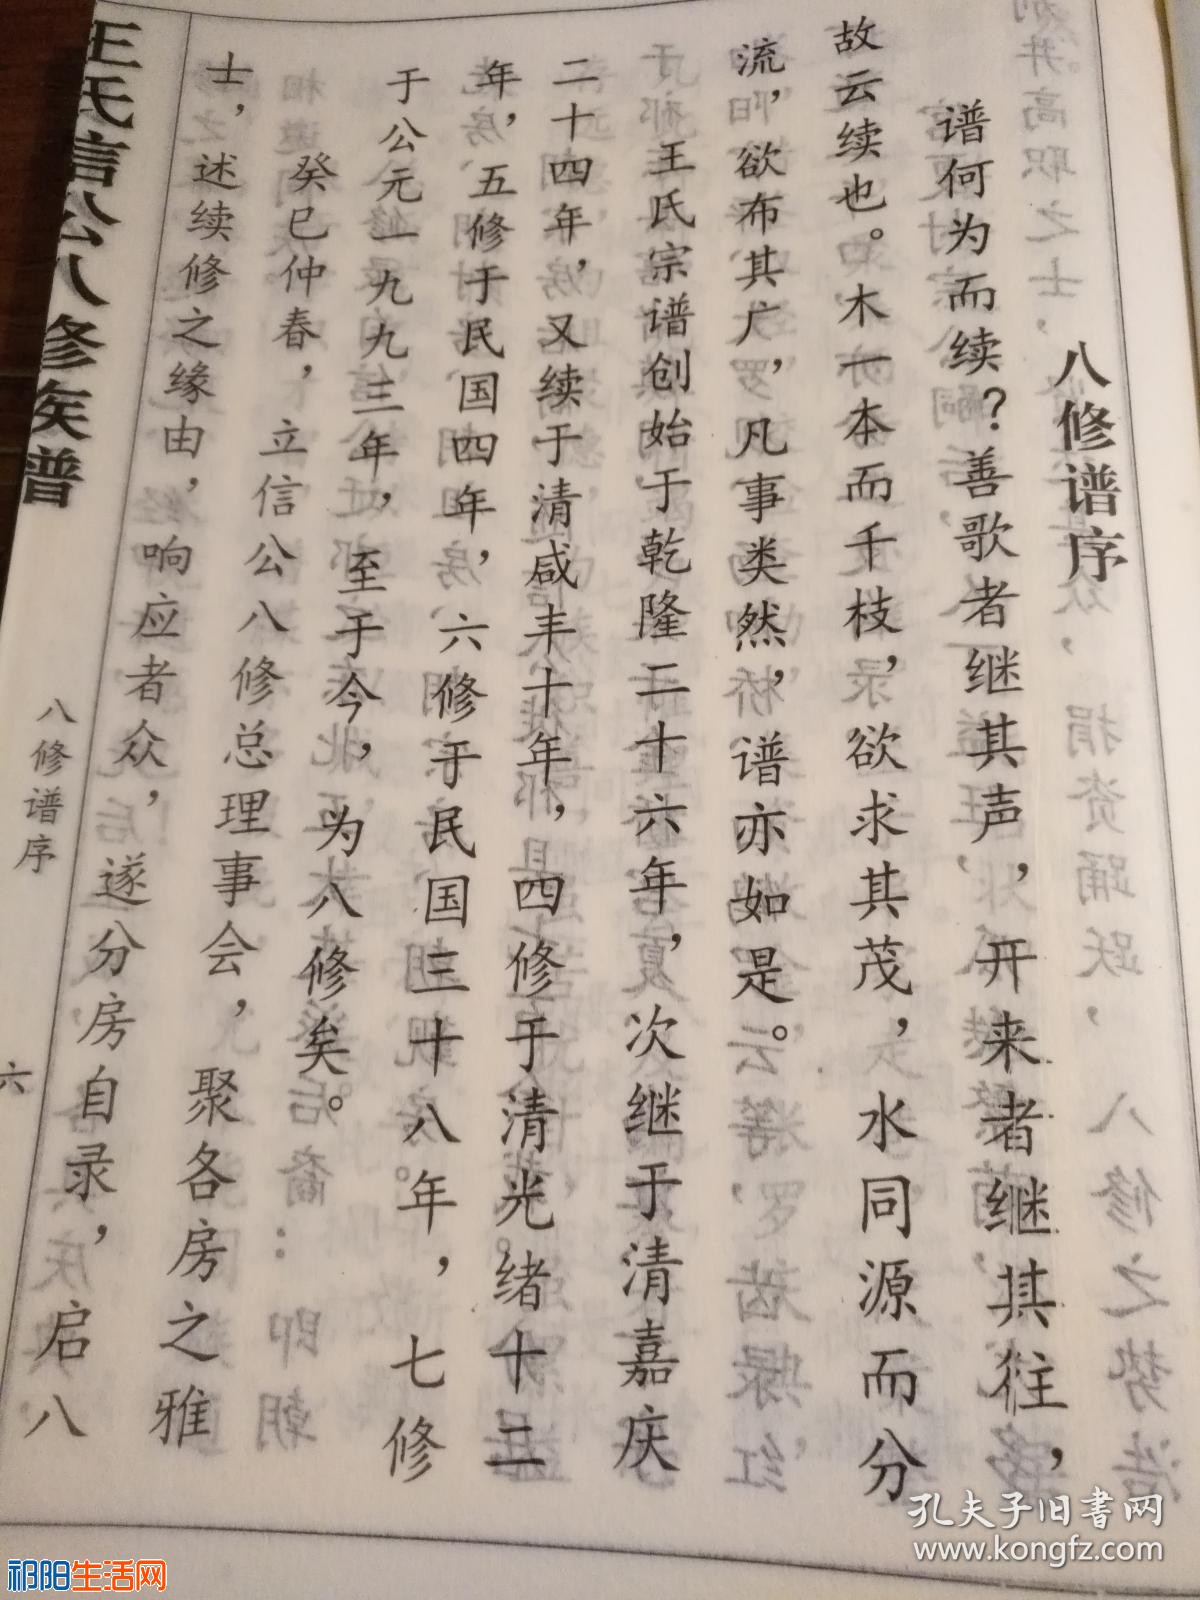 八修谱序
谱何为而续？善歌者继其声，开来者继其往，
故云续也。木一本而千枝，欲求其茂，水同源而分
流，欲布其广，凡事类然，谱亦如是。
王氏宗谱创始于乾隆二十六年，次继于清嘉庆
二十四年，又续于清咸丰十年，四修于清光绪十二
年，五修于民国四年，六修于民国三十八年，七修
于公元一九九三年，至于今，为八修矣。
癸巳仲春，立信公八修总理事会，聚各房之雅
士，述续修之缘由，响应者众，遂分房自录，启八
王氏信公八修族谱
八修谱序
六
孔夫子旧书网
www.kongfz.com
祁阳生活网